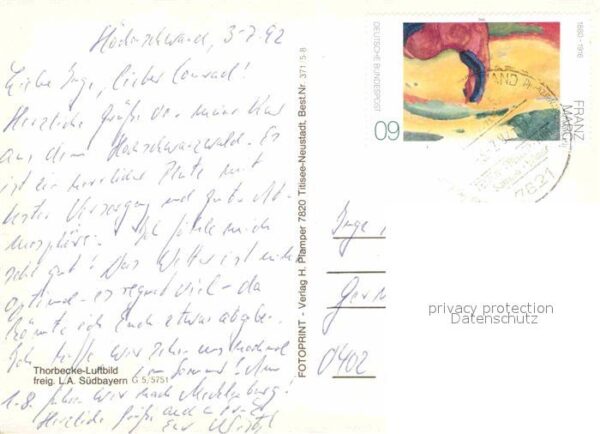 Höchenschwand, 3-7-92
Liebe Inge, lieber Conrad!
Herzliche Grüße von meiner Kur
aus dem Hochschwarzwald. Es
ist ein herrliches Platz mit
bester Versorgung und guter At-
mosphäre. Ich fühle mich
sehr gut! Das Wetter ist nicht
optimal - es regnet viel - da
könnte ich Euch etwas abgeben.
Ich hoffe wir sehen uns nochmal
im Sommer!
1.-8. fahren wir nach Mecklenburg!
Herzliche Grüße auch
Thorbecke-Luftbild
freig. L.A. Südbayern G 5/5751
FOTOPRINT - Verlag H. Plamper 7820 Titisee-Neustadt, Best.Nr. 371 5-8
DEUTSCHE BUNDESPOST
60
FRANZ MARC
1880-1916
7821
Inge
0402
privacy protection
Datenschutz